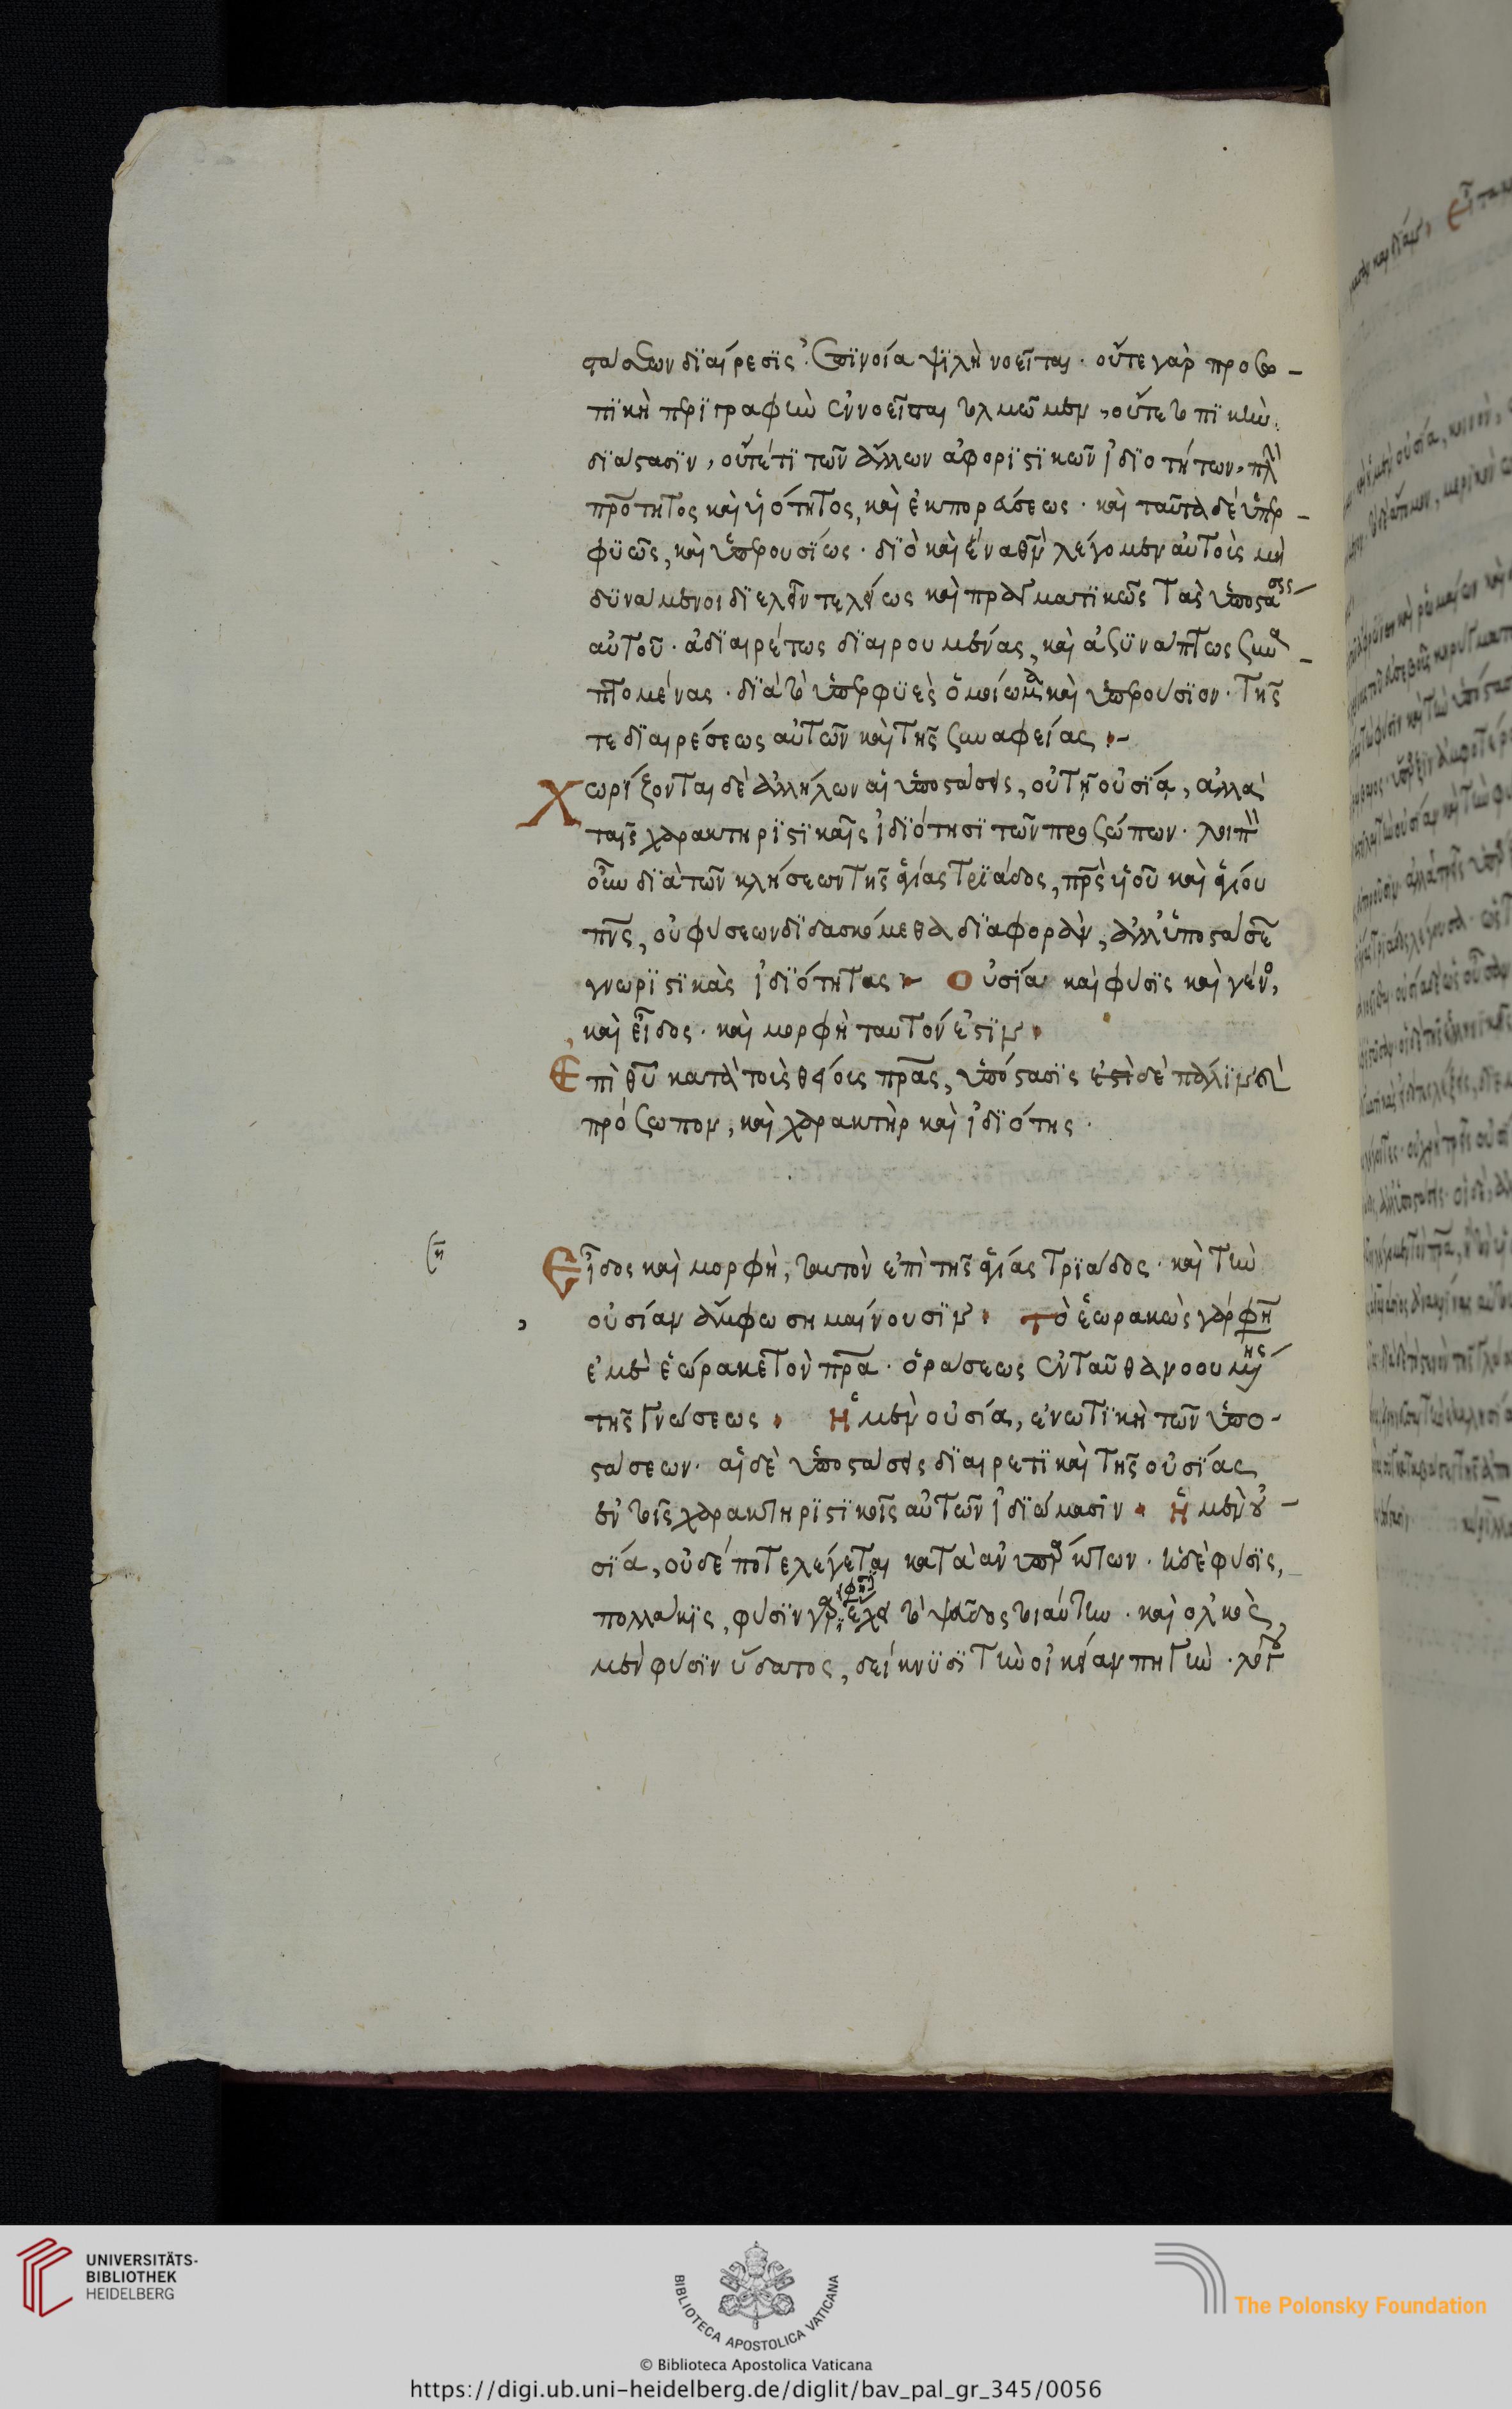 στάσεων διαίρεσις. ἐπινοία ψιλὴ νοεῖται · οὔτε γὰρ προσω -
πικὴ περιγραφὴν ἐννοεῖσθαι τολμῶμεν, οὔτε τοπικὴν
διάστασιν, οὔτέ τι τῶν ἄλλων ἀφοριστικῶν ἰδιοτήτων, πλὴν
πρότητος καὶ υἱότητος, καὶ ἐκπορεύσεως · καὶ ταῦτα δὲ ὑπερ -
φυῶς, καὶ ὑπερουσίως · διὸ καὶ ἕνα θν λέγομεν αὐτοῖς μὴ
δυνάμενοι διελεῖν τελείως καὶ πραγματικῶς τὰς ὑποστάσεις
αὐτοῦ · ἀδιαιρέτως διαιρουμένας, καὶ ἀσυνάπτως συνα -
πτομένας · διὰ τὸ ὑπερφυὲς ὅμοίωμα καὶ ὑπερούσιον · τῆς
τε διαιρέσεως αὐτῶν καὶ τῆς συναφείας
Χωρίζονται δὲ ἀλλήλων αἱ ὑποστάσεις, οὐ τῇ οὐσίᾳ, ἀλλὰ
ταῖς χαρακτηριστικαῖς ἰδιότησι τῶν προσώπων · λοιπὸν
οὖν διὰ τῶν κλήσεων τῆς ἁγίας τριάδος, πρς υἱοῦ καὶ ἁγίου
πνς, οὐ φύσεων διδασκόμεθα διαφορὰν, ἀλλ' ὑποστάσεων
γνωριστικὰς ἰδιότητας Οὐσία καὶ φύσις καὶ γένος,
καὶ εἶδος · καὶ μορφὴ ταυτόν ἐστιν
Ἐπὶ θυ κατὰ τοὺς θείους πρας, ὑπόστασις ἐστὶ δὲ πάλιν
πρόσωπον, καὶ χαρακτὴρ καὶ ἰδιότης ·
Εἶδος καὶ μορφὴ, ταυτὸν ἐπὶ τῆς ἁγίας τριάδος · καὶ τὴν
οὐσίαν ἄμφω σημαίνουσιν Ὁ ἑωρακὼς γάρ φη
ἐμὲ ἑώρακε τὸν πρα · ὁράσεως ἐνταῦθα νοουμένης
τῆς γνώσεως Ἡ μὲν οὐσία, ἑνωτικὴ τῶν ὑπο -
στάσεων · αἱ δὲ ὑποστάσεις διαιρετικαὶ τῆς οὐσίας
ἐν τοῖς χαρακτηριστικοῖς αὐτῶν ἰδιώμασιν Ἡ μὲν οὐ -
σία, οὐδέποτε λέγεται κατὰ ἀνυπάρκτων · ἡ δὲ φύσις,
πολλάκις, φύσιν γάρ φησιν ἔχει τὸ ψεῦδος τοιαύτην · καὶ ὁλκὸς
μὲν φύσιν ὕδατος, δείκνυσι τὴν οἰκείαν πηγὴν · λόγου
UNIVERSITÄTS-
BIBLIOTHEK
HEIDELBERG
BIBLIOTECA APOSTOLICA VATICANA
The Polonsky Foundation
© Biblioteca Apostolica Vaticana
https://digi.ub.uni-heidelberg.de/diglit/bav_pal_gr_345/0056